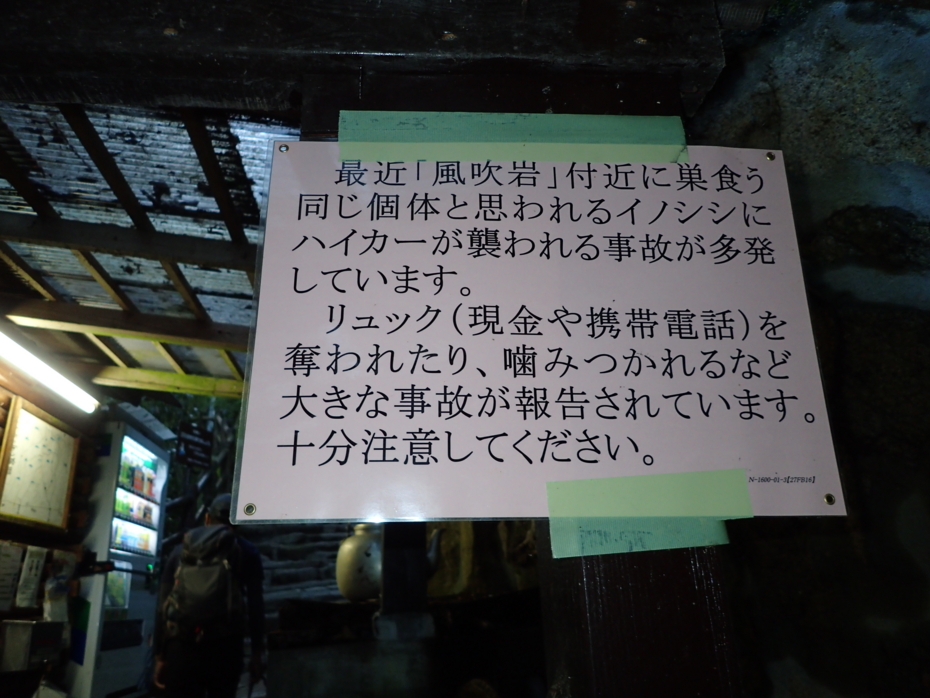 最近「風吹岩」付近に巣食う
同じ個体と思われるイノシシに
ハイカーが襲われる事故が多発
しています。
リュック(現金や携帯電話)を
奪われたり、噛みつかれるなど
大きな事故が報告されています。
十分注意してください。